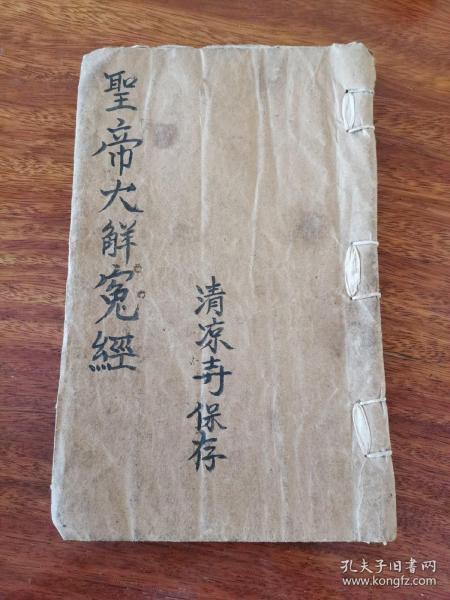 聖帝大解寃經
清凉寺保存
孔夫子旧书网
www.kongfz.com